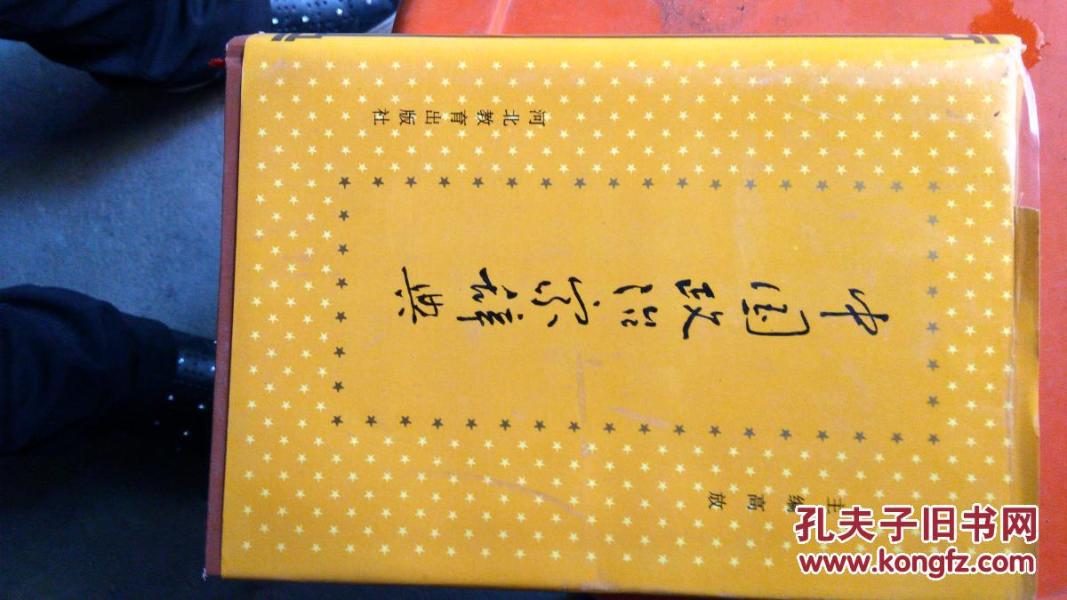 中国政治家辞典
主编 高放
河北教育出版社
孔夫子旧书网
www.kongfz.com